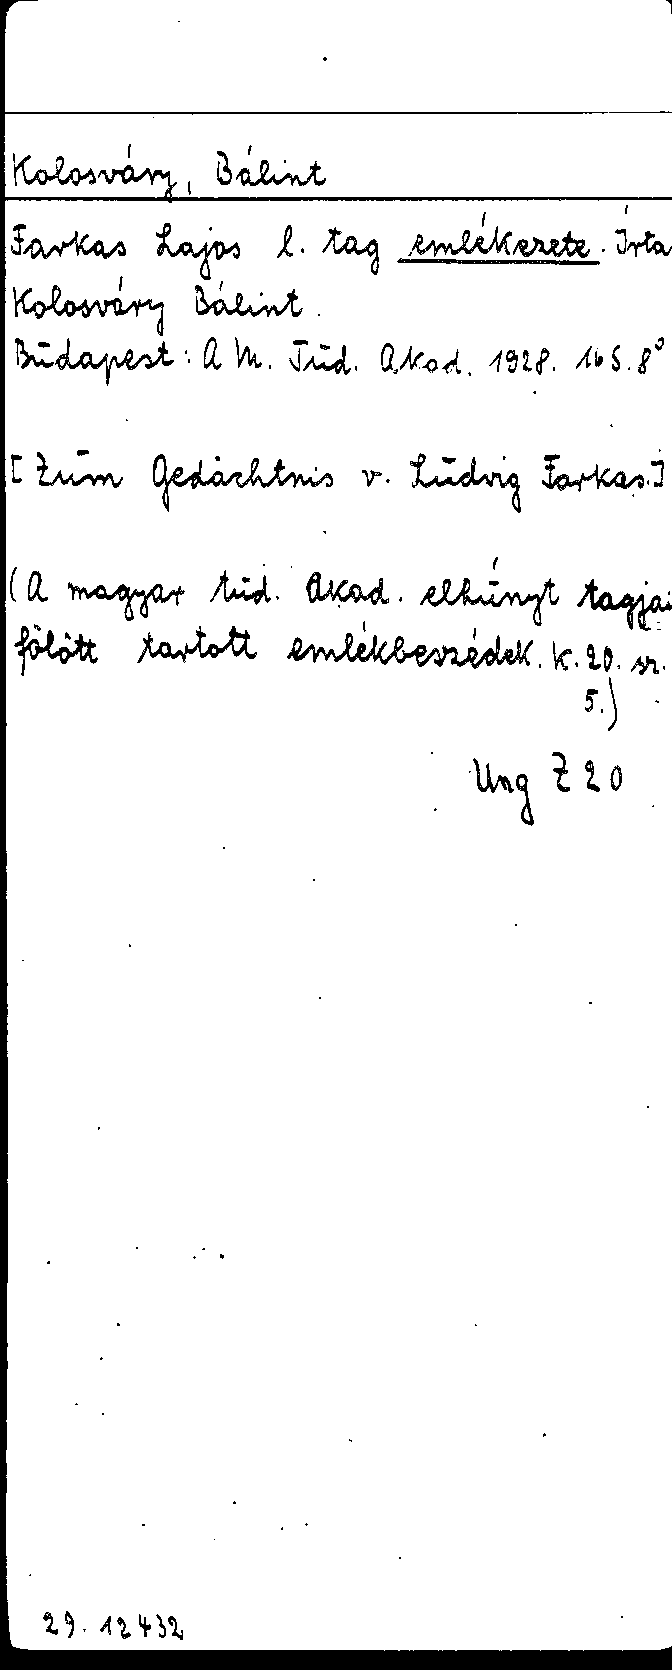 Kolosváry, Bálint
Farkas Lajos l. tag emlékezete. Írta
Kolosváry Bálint.
Budapest: A M. Tud. Akad. 1928. 16 S. 8°
[Zum Gedächtnis v. Ludvig Farkas.]
(A magyar tud. Akad. elhúnyt tagjai
fölött tartott emlékbeszédek. K. 20. sz.
5.)
Ung Z 20
29. 12432